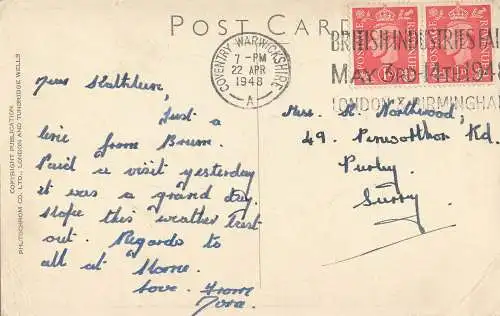 POST CARD
COVENTRY WARWICKSHIRE
7 - PM
22 APR
1948
A
BRITISH INDUSTRIES FAI
MAY 3RD-14TH 1948
LONDON & BIRMINGHAM
POSTAGE REVENUE
POSTAGE REVENUE
COPYRIGHT PUBLICATION
PHOTOCHROM CO. LTD., LONDON AND TUNBRIDGE WELLS
Dear Kathleen,
Just a
line from Brum.
Paid a visit yesterday
it was a grand day.
Hope this weather last
out. Regards to
all at Home.
Love. From
Dora.
Miss. K. Northwood,
49. Penwortham Rd.
Purley.
Surry.